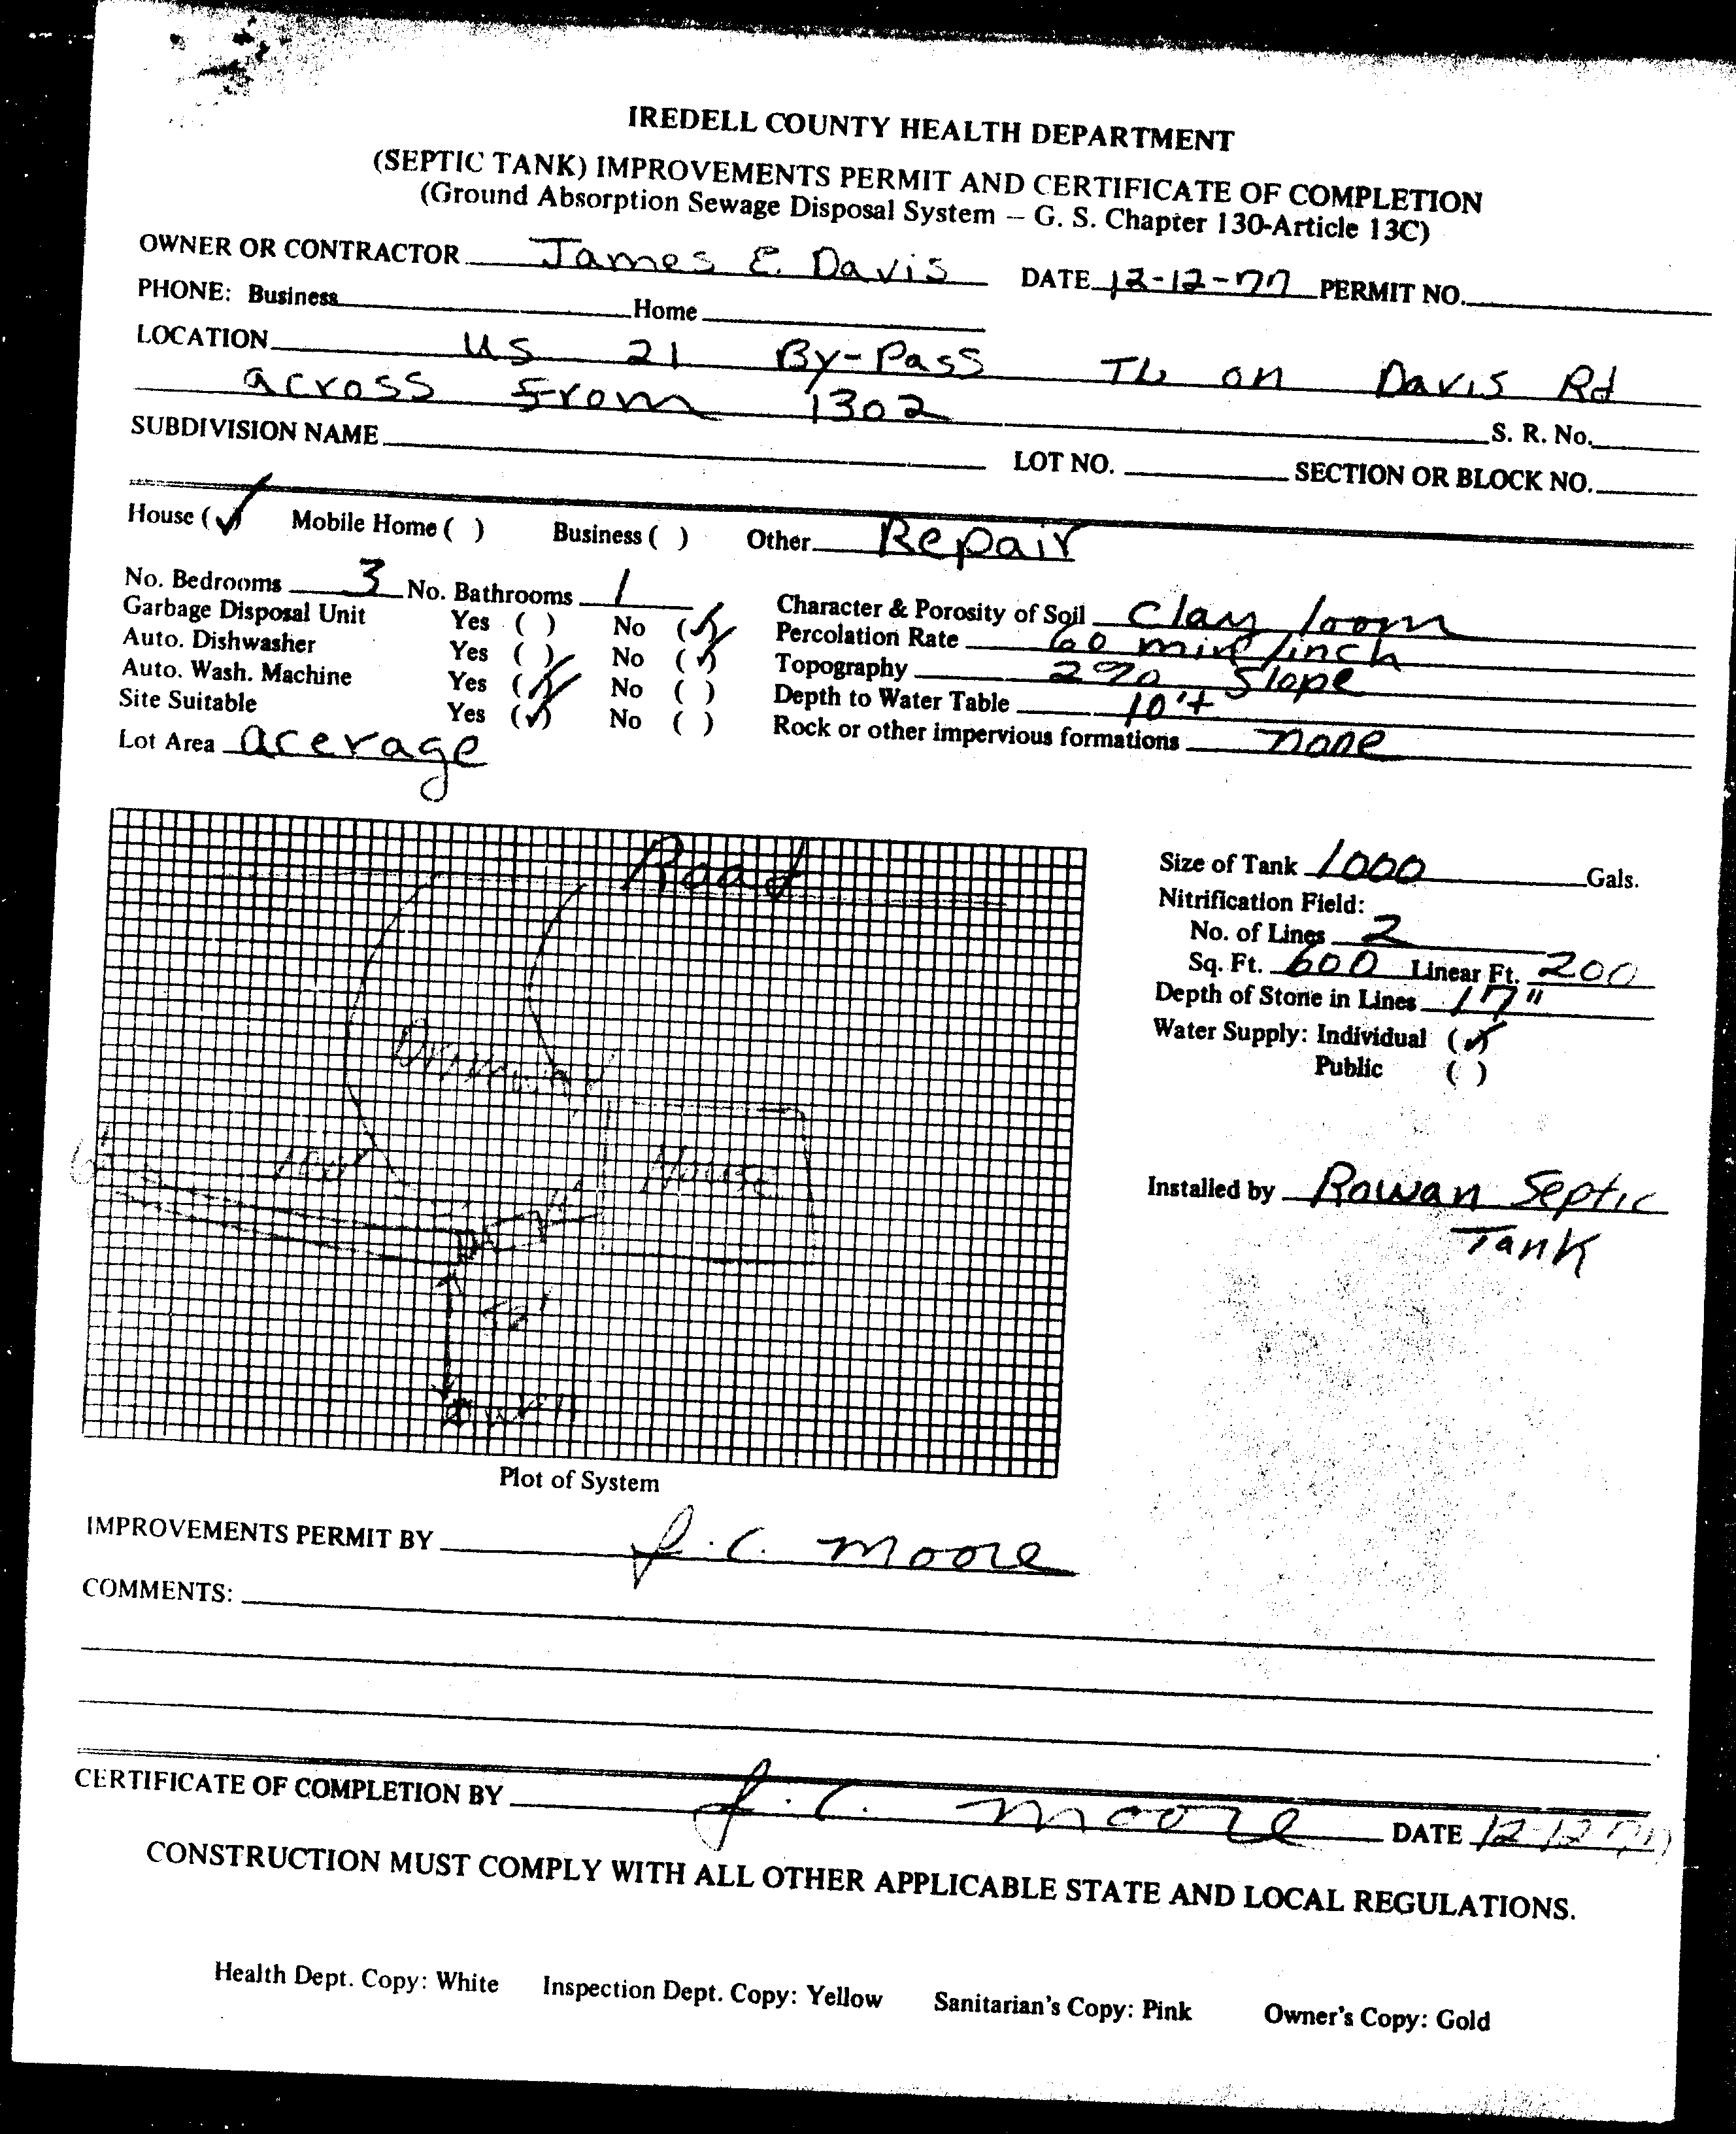 IREDELL COUNTY HEALTH DEPARTMENT
(SEPTIC TANK) IMPROVEMENTS PERMIT AND CERTIFICATE OF COMPLETION
(Ground Absorption Sewage Disposal System — G. S. Chapter 130-Article 13C)
OWNER OR CONTRACTOR James E. Davis DATE 12-12-77 PERMIT NO.
PHONE: Business Home
LOCATION US 21 By-Pass TL on Davis Rd
across from 1302 S. R. No.
SUBDIVISION NAME LOT NO. SECTION OR BLOCK NO.
House (✓) Mobile Home ( ) Business ( ) Other Repair
No. Bedrooms 3 No. Bathrooms 1
Garbage Disposal Unit Yes ( ) No (✓)
Auto. Dishwasher Yes ( ) No (✓)
Auto. Wash. Machine Yes (✓) No ( )
Site Suitable Yes (✓) No ( )
Lot Area acerage
Character & Porosity of Soil Clay loom
Percolation Rate 60 min/inch
Topography 2% Slope
Depth to Water Table 10'+
Rock or other impervious formations none
Road
House
well
Plot of System
Size of Tank 1000 Gals.
Nitrification Field:
No. of Lines 2
Sq. Ft. 600 Linear Ft. 200
Depth of Stone in Lines 17"
Water Supply: Individual (✓)
Public ( )
Installed by Rowan Septic
Tank
IMPROVEMENTS PERMIT BY J. C. Moore
COMMENTS:
CERTIFICATE OF COMPLETION BY J. C. Moore DATE 12-12-77
CONSTRUCTION MUST COMPLY WITH ALL OTHER APPLICABLE STATE AND LOCAL REGULATIONS.
Health Dept. Copy: White Inspection Dept. Copy: Yellow Sanitarian's Copy: Pink Owner's Copy: Gold